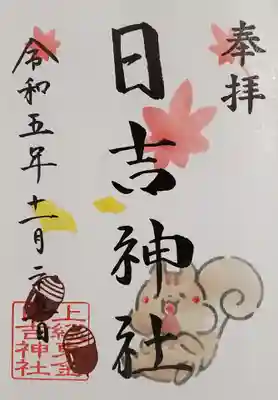 奉拝
日吉神社
令和五年十一月 日
上総東金
日吉神社